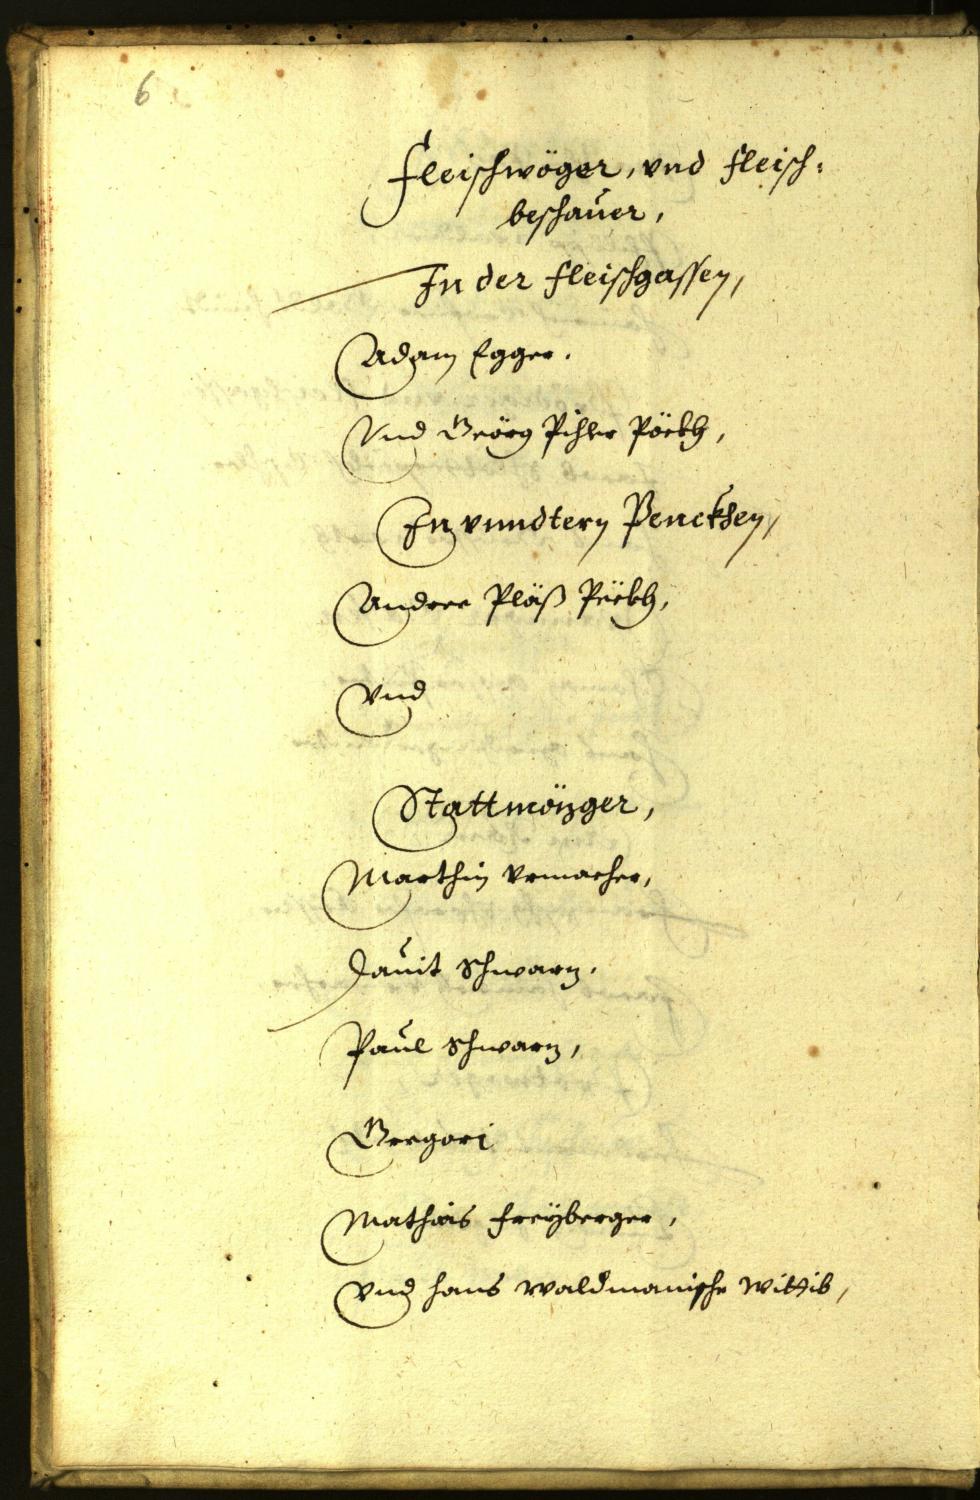 6
Fleischwöger, vnd Fleisch-
beschauer,
In der Fleischgassen,
Adam Egger.
Vnd Geörg Pihler Pöckh,
In vnndtern Pencksen,
Andree Pläß Pöckh,
Vnd
Stattmözger,
Marthin Vrmacher,
Dauit Schwarz.
Paul Schwarz,
Gregori
Mathias Freÿberger,
Vnd Hans Waldmanische Wittib,